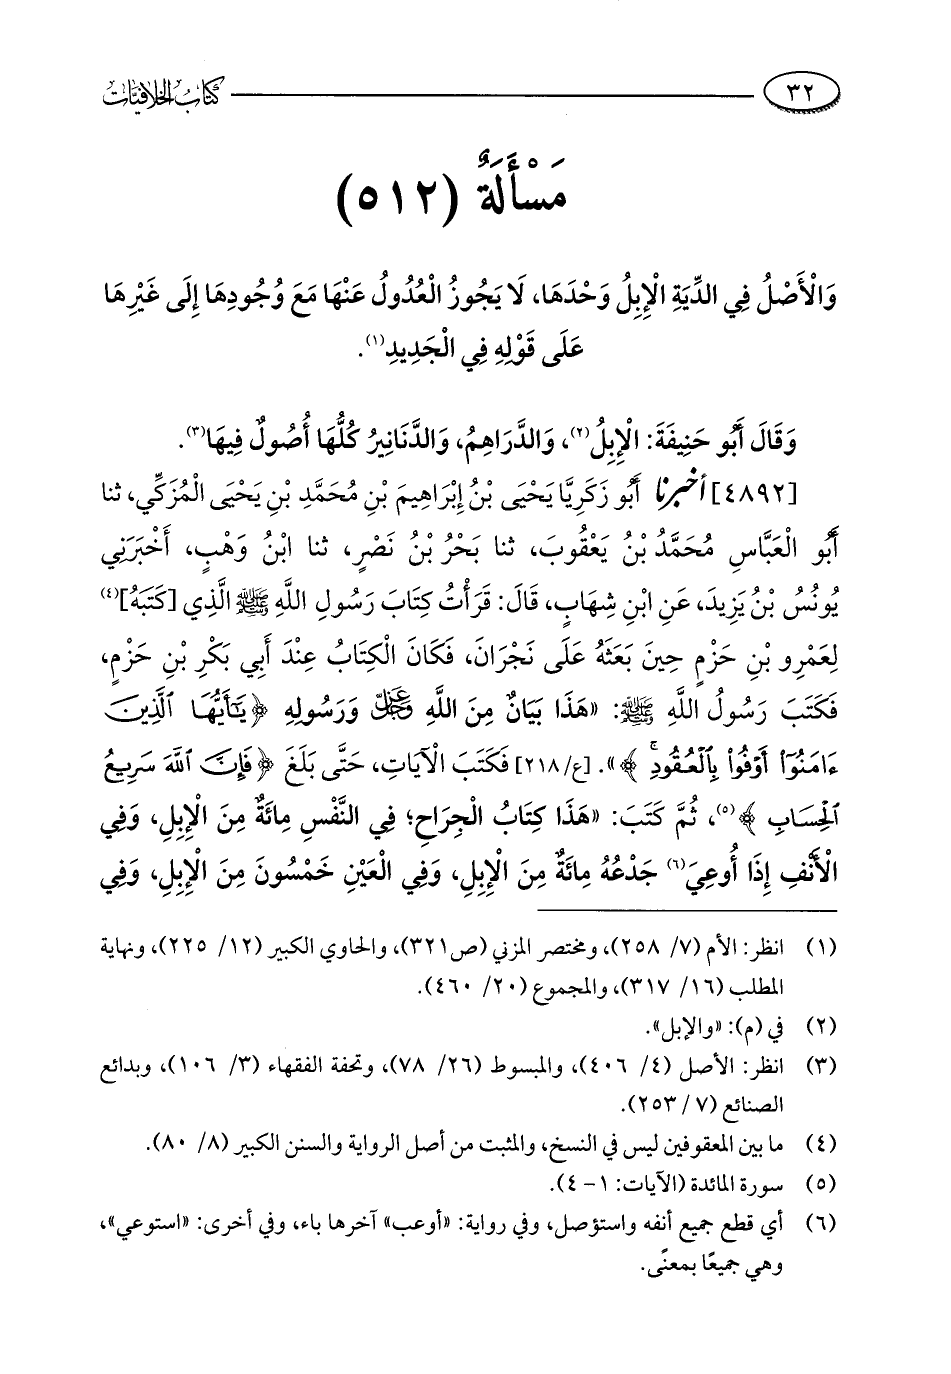 ٣٢ كتاب الخلافيات
مَسْأَلَةٌ (٥١٢)
وَالْأَصْلُ فِي الدِّيَةِ الْإِبِلُ وَحْدَهَا، لَا يَجُوزُ الْعُدُولُ عَنْهَا مَعَ وُجُودِهَا إِلَى غَيْرِهَا
عَلَى قَوْلِهِ فِي الْجَدِيدِ(١).
وَقَالَ أَبُو حَنِيفَةَ: الْإِبِلُ(٢)، وَالدَّرَاهِمُ، وَالدَّنَانِيرُ كُلُّهَا أُصُولٌ فِيهَا(٣).
[٤٨٩٢] أخبرنا أَبُو زَكَرِيَّا يَحْيَى بْنُ إِبْرَاهِيمَ بْنِ مُحَمَّدِ بْنِ يَحْيَى الْمُزَكِّي، ثنا
أَبُو الْعَبَّاسِ مُحَمَّدُ بْنُ يَعْقُوبَ، ثنا بَحْرُ بْنُ نَصْرٍ، ثنا ابْنُ وَهْبٍ، أَخْبَرَنِي
يُونُسُ بْنُ يَزِيدَ، عَنِ ابْنِ شِهَابٍ، قَالَ: قَرَأْتُ كِتَابَ رَسُولِ اللَّهِ ﷺ الَّذِي [كَتَبَهُ](٤)
لِعَمْرِو بْنِ حَزْمٍ حِينَ بَعَثَهُ عَلَى نَجْرَانَ، فَكَانَ الْكِتَابُ عِنْدَ أَبِي بَكْرِ بْنِ حَزْمٍ،
فَكَتَبَ رَسُولُ اللَّهِ ﷺ: «هَذَا بَيَانٌ مِنَ اللَّهِ عَزَّ وَجَلَّ وَرَسُولِهِ ﴿يَٰٓأَيُّهَا ٱلَّذِينَ
ءَامَنُوٓا۟ أَوْفُوا۟ بِٱلْعُقُودِ ۚ ﴾». [ع/٢١٨] فَكَتَبَ الْآيَاتِ، حَتَّى بَلَغَ ﴿فَإِنَّ ٱللَّهَ سَرِيعُ
ٱلْحِسَابِ ﴾(٥)، ثُمَّ كَتَبَ: «هَذَا كِتَابُ الْجِرَاحِ؛ فِي النَّفْسِ مِائَةٌ مِنَ الْإِبِلِ، وَفِي
الْأَنْفِ إِذَا أُوعِيَ(٦) جَدْعُهُ مِائَةٌ مِنَ الْإِبِلِ، وَفِي الْعَيْنِ خَمْسُونَ مِنَ الْإِبِلِ، وَفِي
(١) انظر: الأم (٧/ ٢٥٨)، ومختصر المزني (ص٣٢١)، والحاوي الكبير (١٢/ ٢٢٥)، ونهاية
المطلب (١٦/ ٣١٧)، والمجموع (٢٠/ ٤٦٠).
(٢) في (م): «والإبل».
(٣) انظر: الأصل (٤/ ٤٠٦)، والمبسوط (٢٦/ ٧٨)، وتحفة الفقهاء (٣/ ١٠٦)، وبدائع
الصنائع (٧/ ٢٥٣).
(٤) ما بين المعقوفين ليس في النسخ، والمثبت من أصل الرواية والسنن الكبير (٨/ ٨٠).
(٥) سورة المائدة (الآيات: ١- ٤).
(٦) أي قطع جميع أنفه واستؤصل، وفي رواية: «أوعب» آخرها باء، وفي أخرى: «استوعي»،
وهي جميعًا بمعنًى.